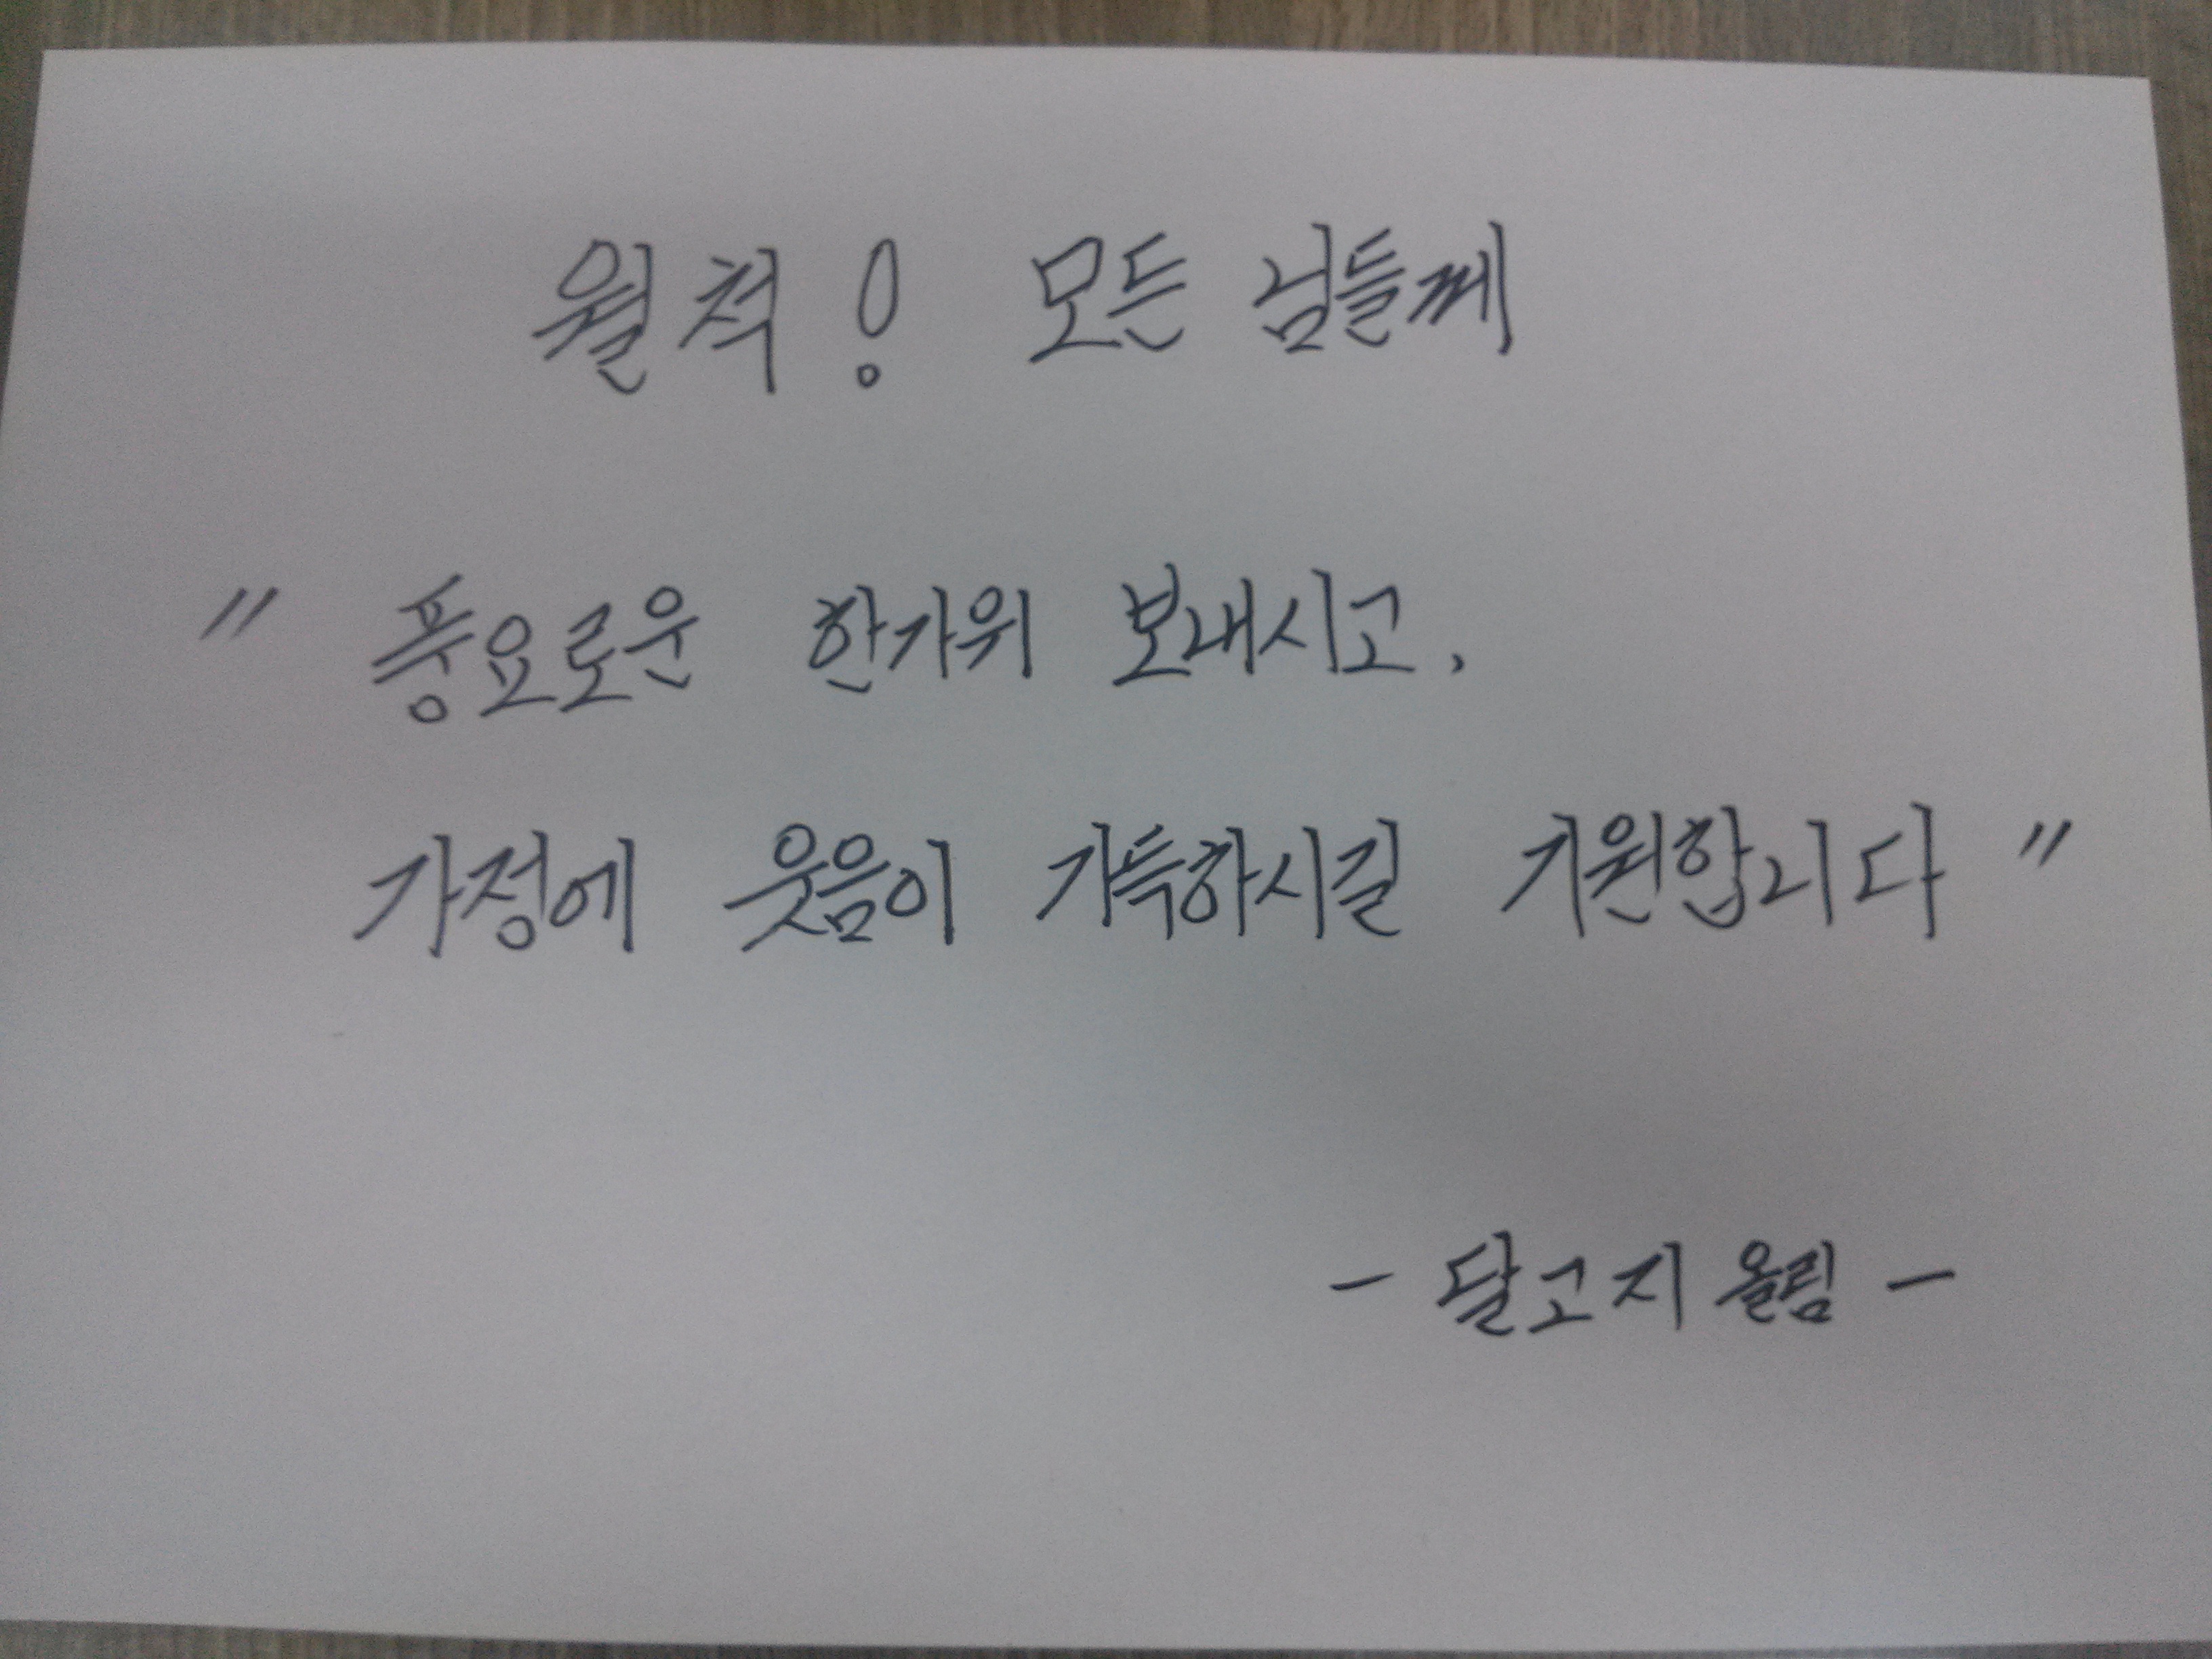 월척! 모든 님들께
" 풍요로운 한가위 보내시고,
가정에 웃음이 가득하시길 기원합니다 "
- 달고지 올림 -